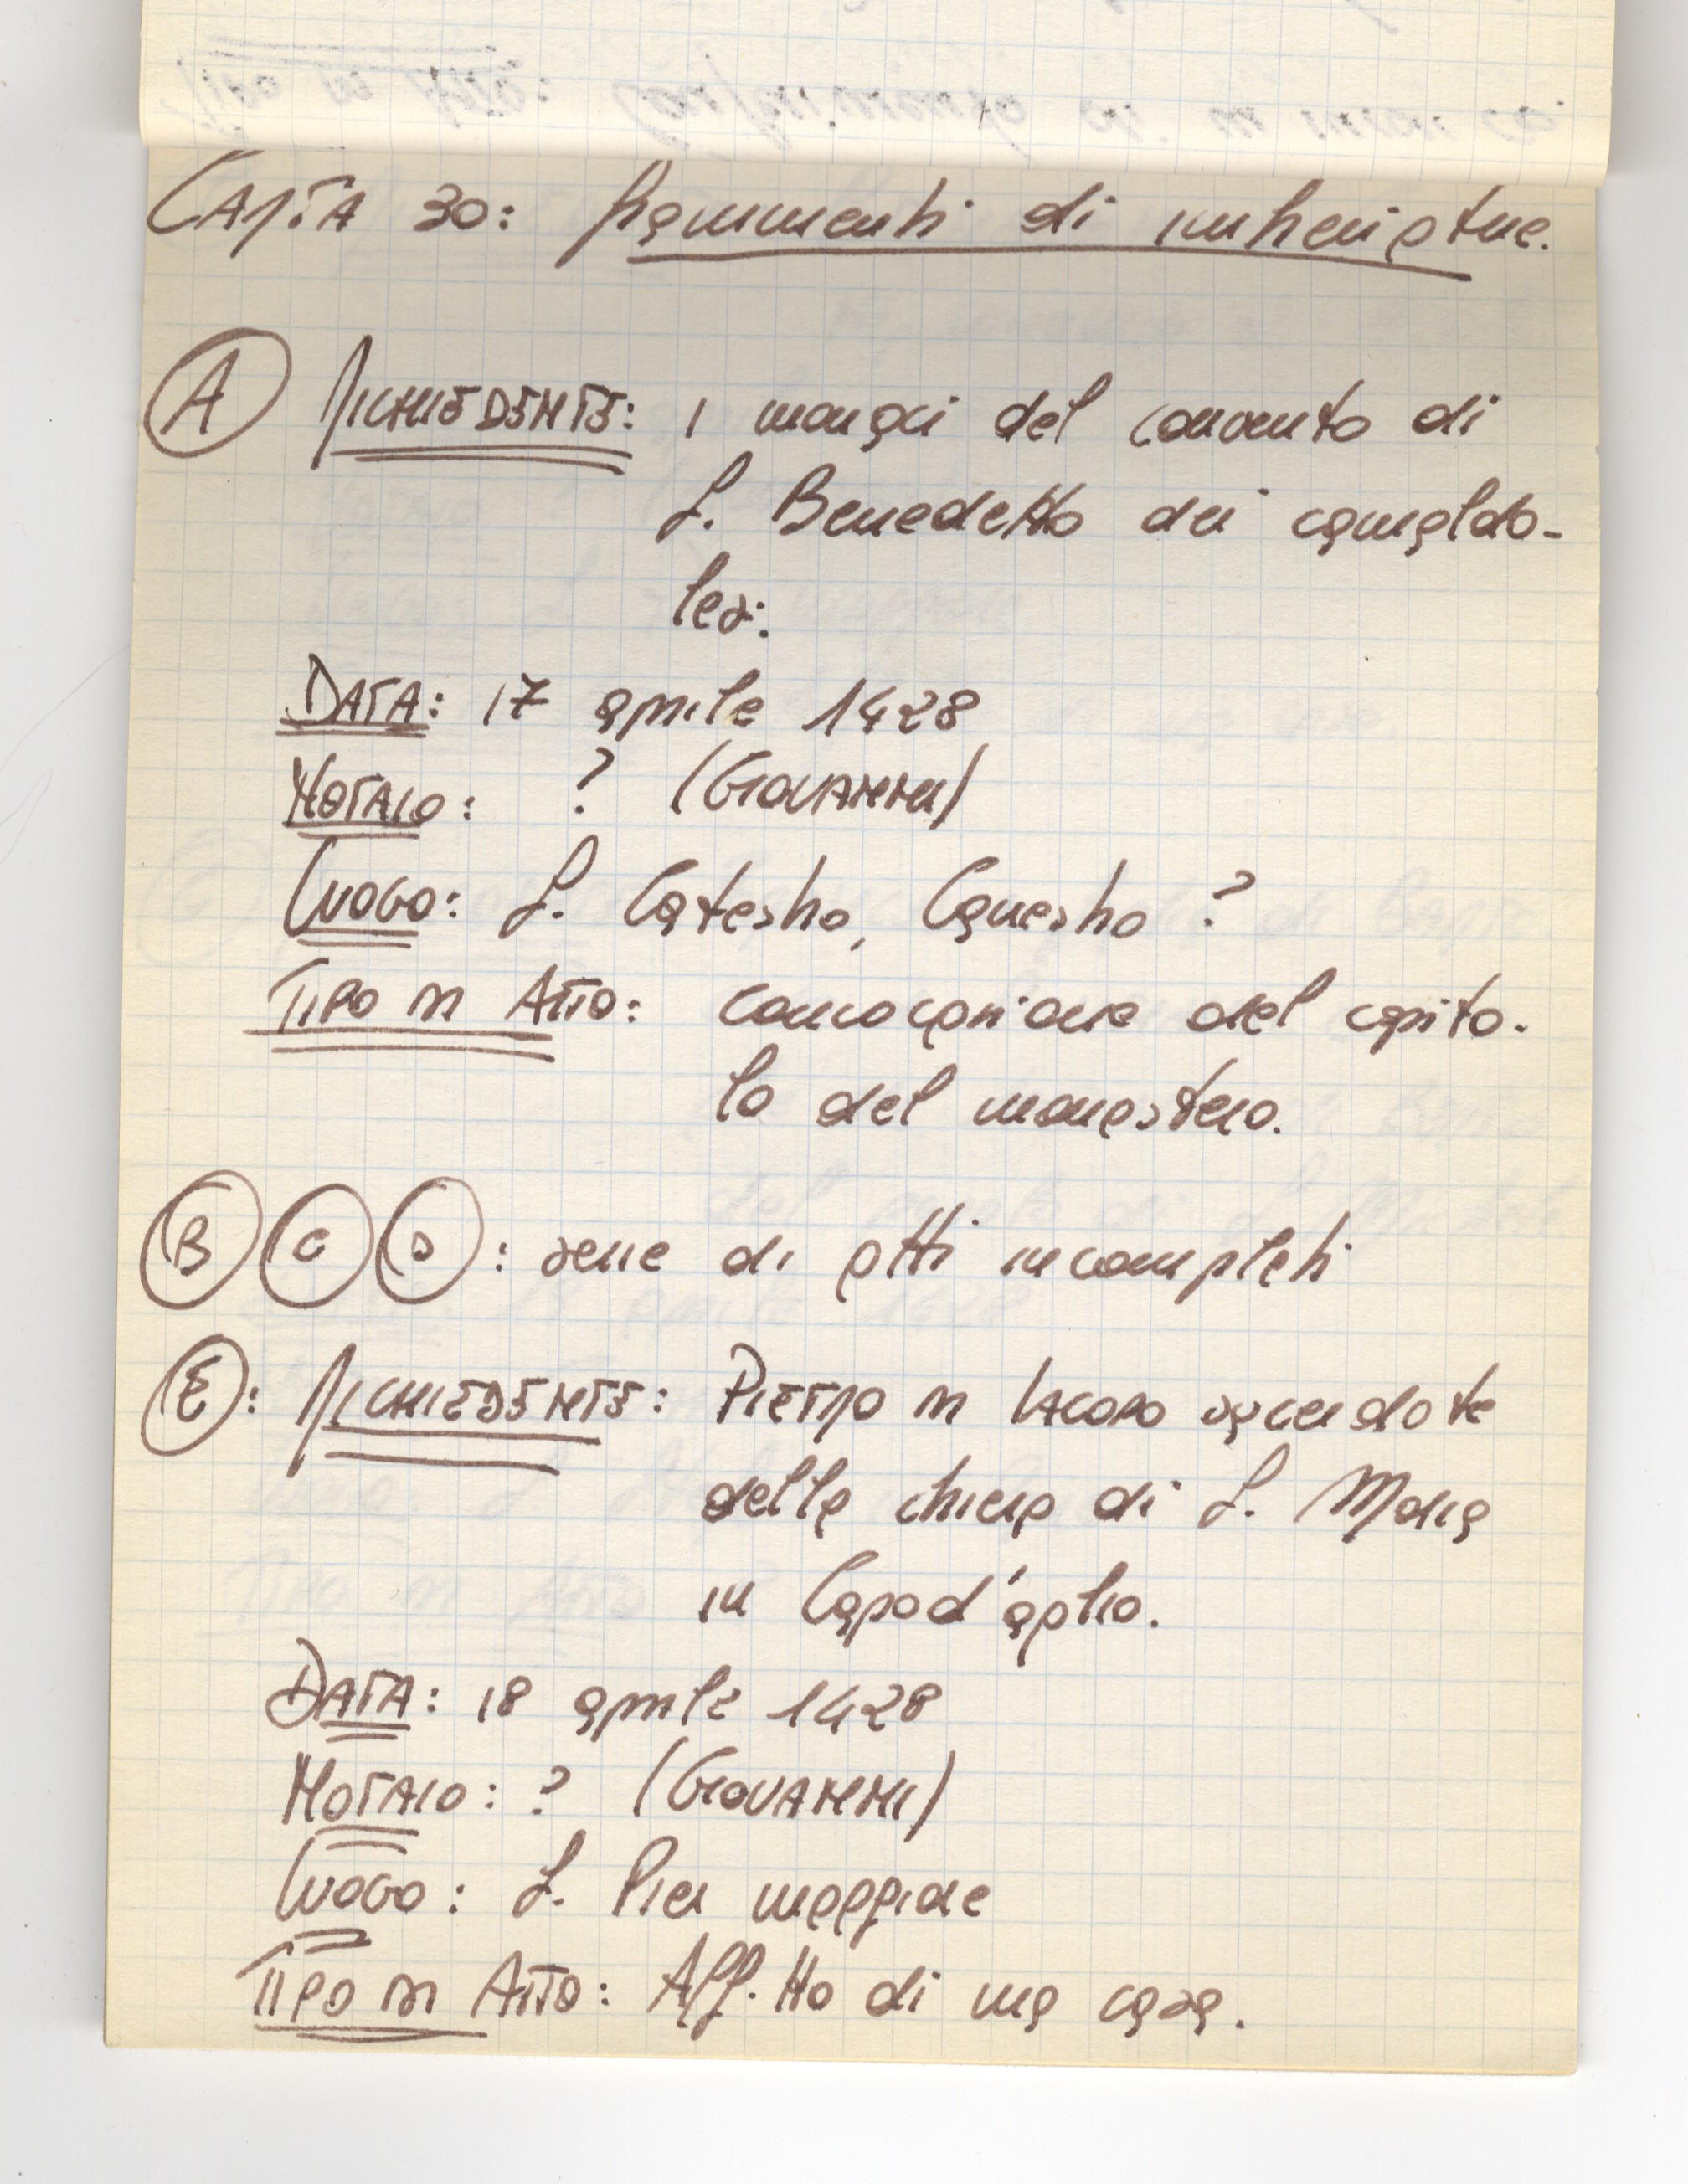 CARTA 30: frammenti di imbreviature.
A RICHIEDENTE: i monaci del convento di
S. Benedetto dei camaldo-
lesi.
DATA: 17 aprile 1428
NOTAIO: ? (GIOVANNI)
LUOGO: S. Catesho, Canesho ?
TIPO DI ATTO: convocazione del capito-
lo del monastero.
B C D : serie di atti incompleti
E : RICHIEDENTE: PIETRO DI IACOPO sacerdote
della chiesa di S. Maria
in Capod'aglio.
DATA: 18 aprile 1428
NOTAIO: ? (GIOVANNI)
LUOGO: S. Pier maggiore
TIPO DI ATTO: Aff.tto di una casa.